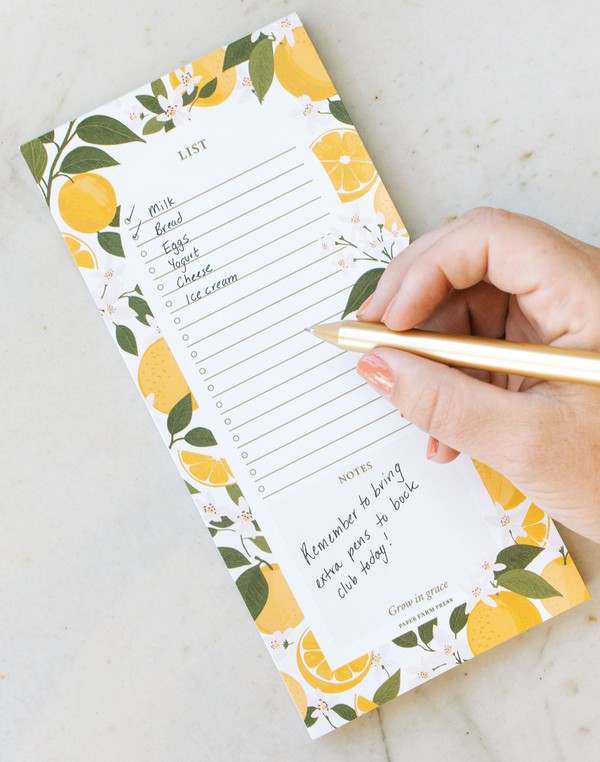 LIST
Milk
Bread
Eggs
Yogurt
Cheese
Ice cream
NOTES
Remember to bring
extra pens to bock
club today!
Grow in grace
PAPER FARM PRESS